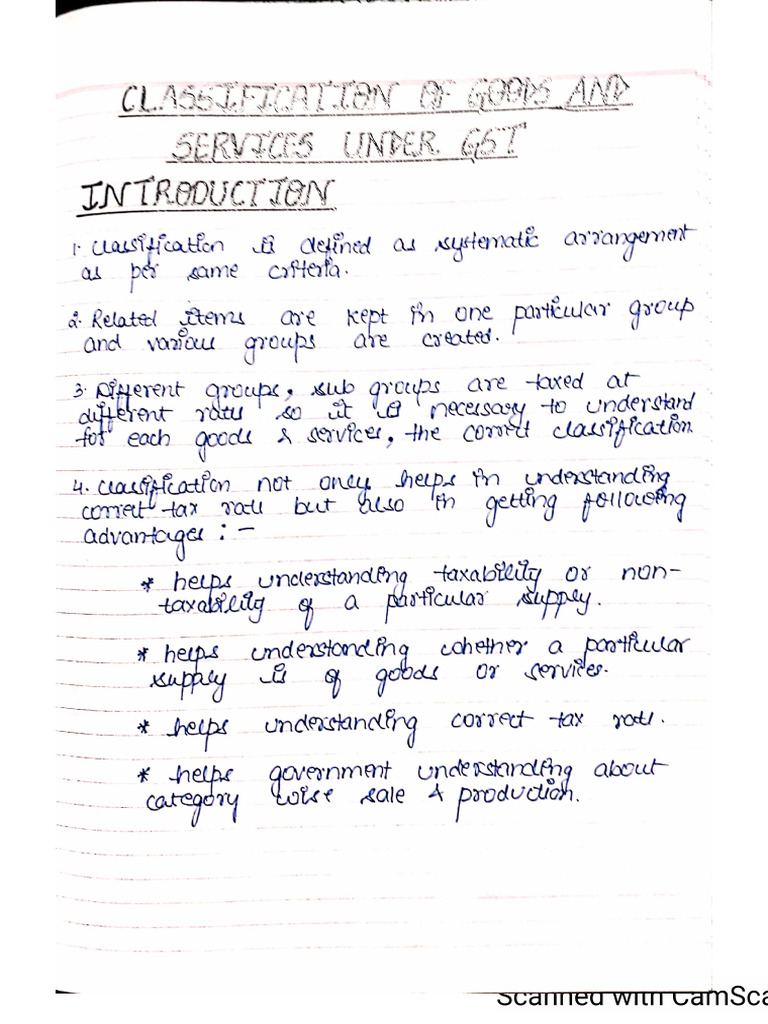 CLASSIFICATION OF GOODS AND
SERVICES UNDER GST
INTRODUCTION
1. Classification is defined as systematic arrangement
as per same criteria.
2. Related items are kept in one particular group
and various groups are created.
3. Different groups, sub groups are taxed at
different rates so it is necessary to understand
for each goods & services, the correct classification
4. Classification not only helps in understanding
correct tax rate but also in getting following
advantages : -
* helps understanding taxability or non-
taxability of a particular supply.
* helps understanding whether a particular
supply is of goods or services.
* helps understanding correct tax rate.
* helps government understanding about
category wise sale & production.
Scanned with CamSca